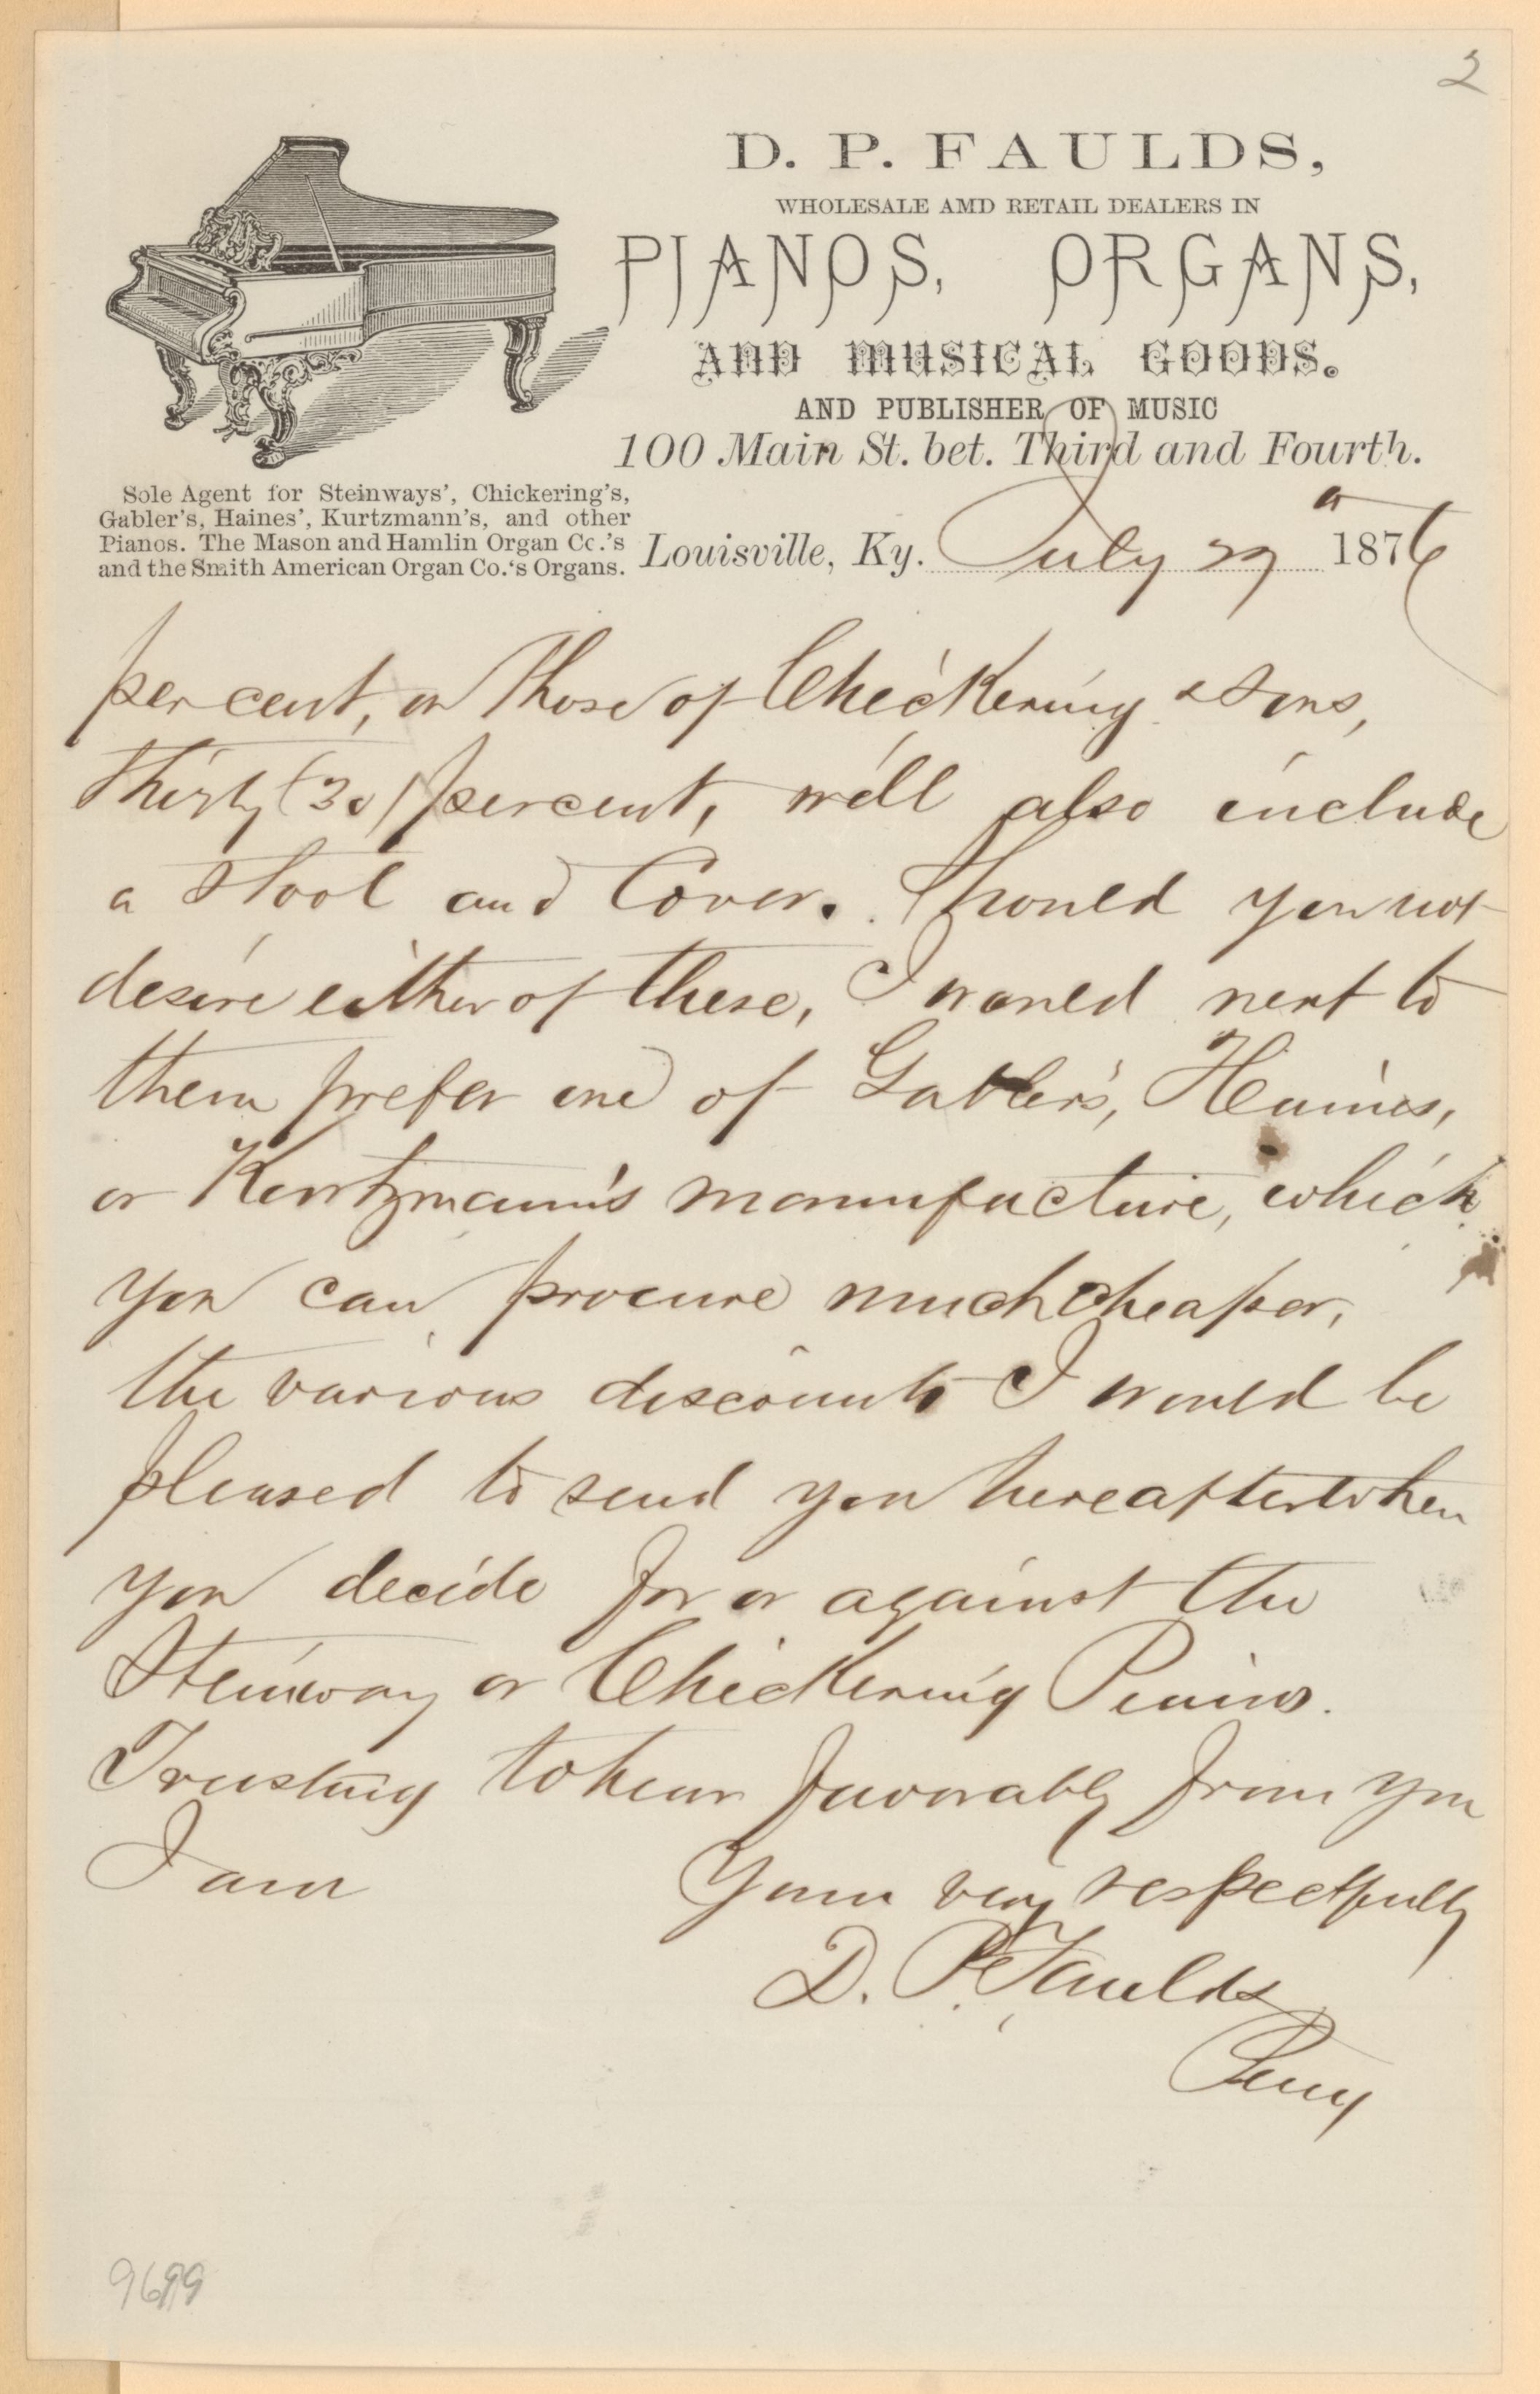 2
D. P. FAULDS,
WHOLESALE AMD RETAIL DEALERS IN
PIANOS, ORGANS,
AND MUSICAL GOODS.
AND PUBLISHER OF MUSIC
100 Main St. bet. Third and Fourth.
Sole Agent for Steinways', Chickering's,
Gabler's, Haines', Kurtzmann's, and other
Pianos. The Mason and Hamlin Organ Co.'s
and the Smith American Organ Co.'s Organs.
Louisville, Ky. July 29 1876
per cent, on those of Chickering & Sons,
thirty (30) percent, will also include
a Stool and Cover. Should you not
desire either of these, I would next to
them prefer one of Gabler's, Haines,
or Kurtzmann's manufacture, which
you can procure much cheaper,
the various discounts I would be
pleased to send you hereafter when
you decide for or against the
Steinway or Chickering Pianos.
Trusting to hear favorably from you
I am
Yours very respectfully
D. P. Faulds
9699